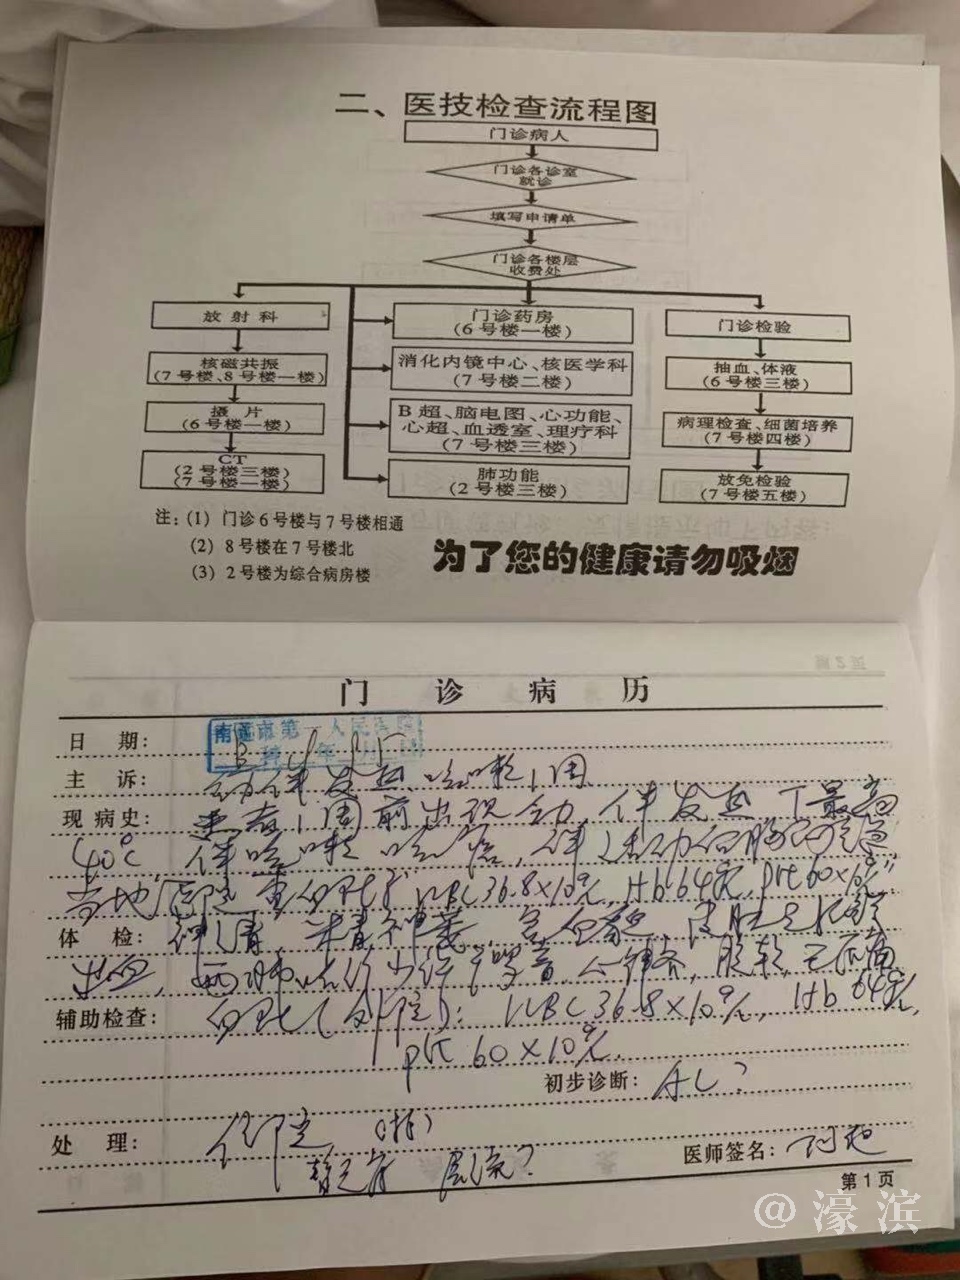 二、医技检查流程图
门诊病人
门诊各诊室
就诊
填写申请单
门诊各楼层
收费处
放射科
核磁共振
(7号楼、8号楼一楼)
摄片
(6号楼一楼)
CT
(2号楼三楼)
(7号楼一楼)
门诊药房
(6号楼一楼)
消化内镜中心、核医学科
(7号楼二楼)
B超、脑电图、心功能、
心超、血透室、理疗科
(7号楼三楼)
肺功能
(2号楼三楼)
门诊检验
抽血、体液
(6号楼三楼)
病理检查、细菌培养
(7号楼四楼)
放免检验
(7号楼五楼)
注：(1) 门诊6号楼与7号楼相通
(2) 8号楼在7号楼北
(3) 2号楼为综合病房楼
为了您的健康请勿吸烟
第2页
门诊病历
日期：
南通市第一人民医院
主诉： 伴发热、咳嗽1周
现病史： 患者1周前出现乏力，伴发热，T最高
40℃ 伴咳嗽咳痰，伴
当地医院查血常规 WBC 36.8×10⁹/L, Hb 64g/L, plt 60×10⁹/L
体检： 神清，精神萎，贫血貌，皮肤
出血，两肺 少许 啰音，心律齐，腹软，无压痛
辅助检查： 血常规(外院)：WBC 36.8×10⁹/L, Hb 64g/L,
plt 60×10⁹/L.
初步诊断： AL?
处理： 住院
医师签名：
第1页
@濠滨